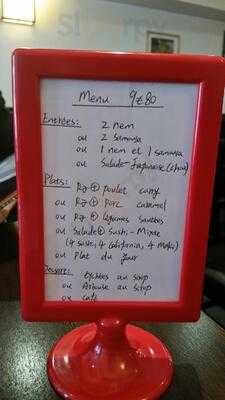 Menu 9€80
Entrées: 2 nem
ou 2 samossa
ou 1 nem et 1 samossa
ou Salade Japonaise (choux)
Plats: Riz + poulet curry
ou Riz + porc caramel
ou Riz + légumes sautées
ou Salade + sushi - Mixte
(4 sushi, 4 california, 4 maki)
ou Plat du Jour
Dessert: Lychées au sirop
ou Arbouse au sirop
ou café